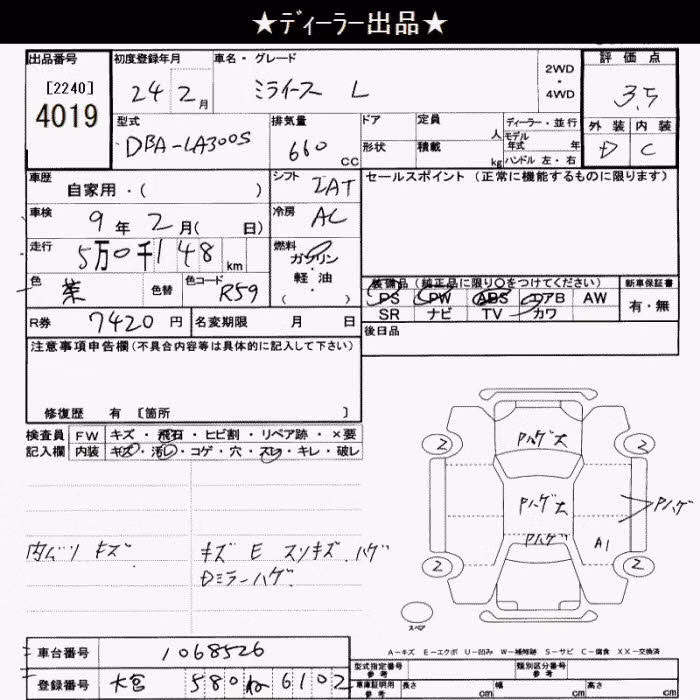 ★ディーラー出品★
出品番号 初度登録年月 車名・グレード 2WD ・ 4WD 評価点
[2240] 4019 24 2月 ミライース L 3.5
型式 排気量 ドア 定員 人 ディーラー・並行 外装 内装
DBA-LA300S 660 CC 形状 積載 kg モデル年式 年 ハンドル 左・右 D C
車歴 自家用・( ) シフト IAT セールスポイント(正常に機能するものに限ります)
車検 9年2月( 日) 冷房 AC
走行 5万0千148 km 燃料 ガソリン・軽油・( )
色 茶 色替 色コード R59 装備品(純正品に限り○をつけてください) 新車保証書
PS PW ABS エアB AW 有・無
R券 7420円 名変期限 月 日 SR ナビ TV カワ
注意事項申告欄(不具合内容等は具体的に記入して下さい) 後日品
修復歴 有 [箇所 ]
検査員 FW キズ・飛石・ヒビ割・リペア跡・×要
記入欄 内装 キズ・汚レ・コゲ・穴・スレ・キレ・破レ
Pハゲ大
2 2
Pハゲ大 Pハゲ
Pハゲ A1
2 2
キズ キズ E スリキズ ハゲ
Dミラーハゲ
スペア
車台番号 1068526
A-キズ E-エクボ U-凹み W-補修跡 S-サビ C-腐食 XX-交換済
登録番号 大宮 580 ね 6102
型式指定番号 参考 類別区分番号 参考
車庫証明用 参考 長さ cm 幅 cm 高さ cm